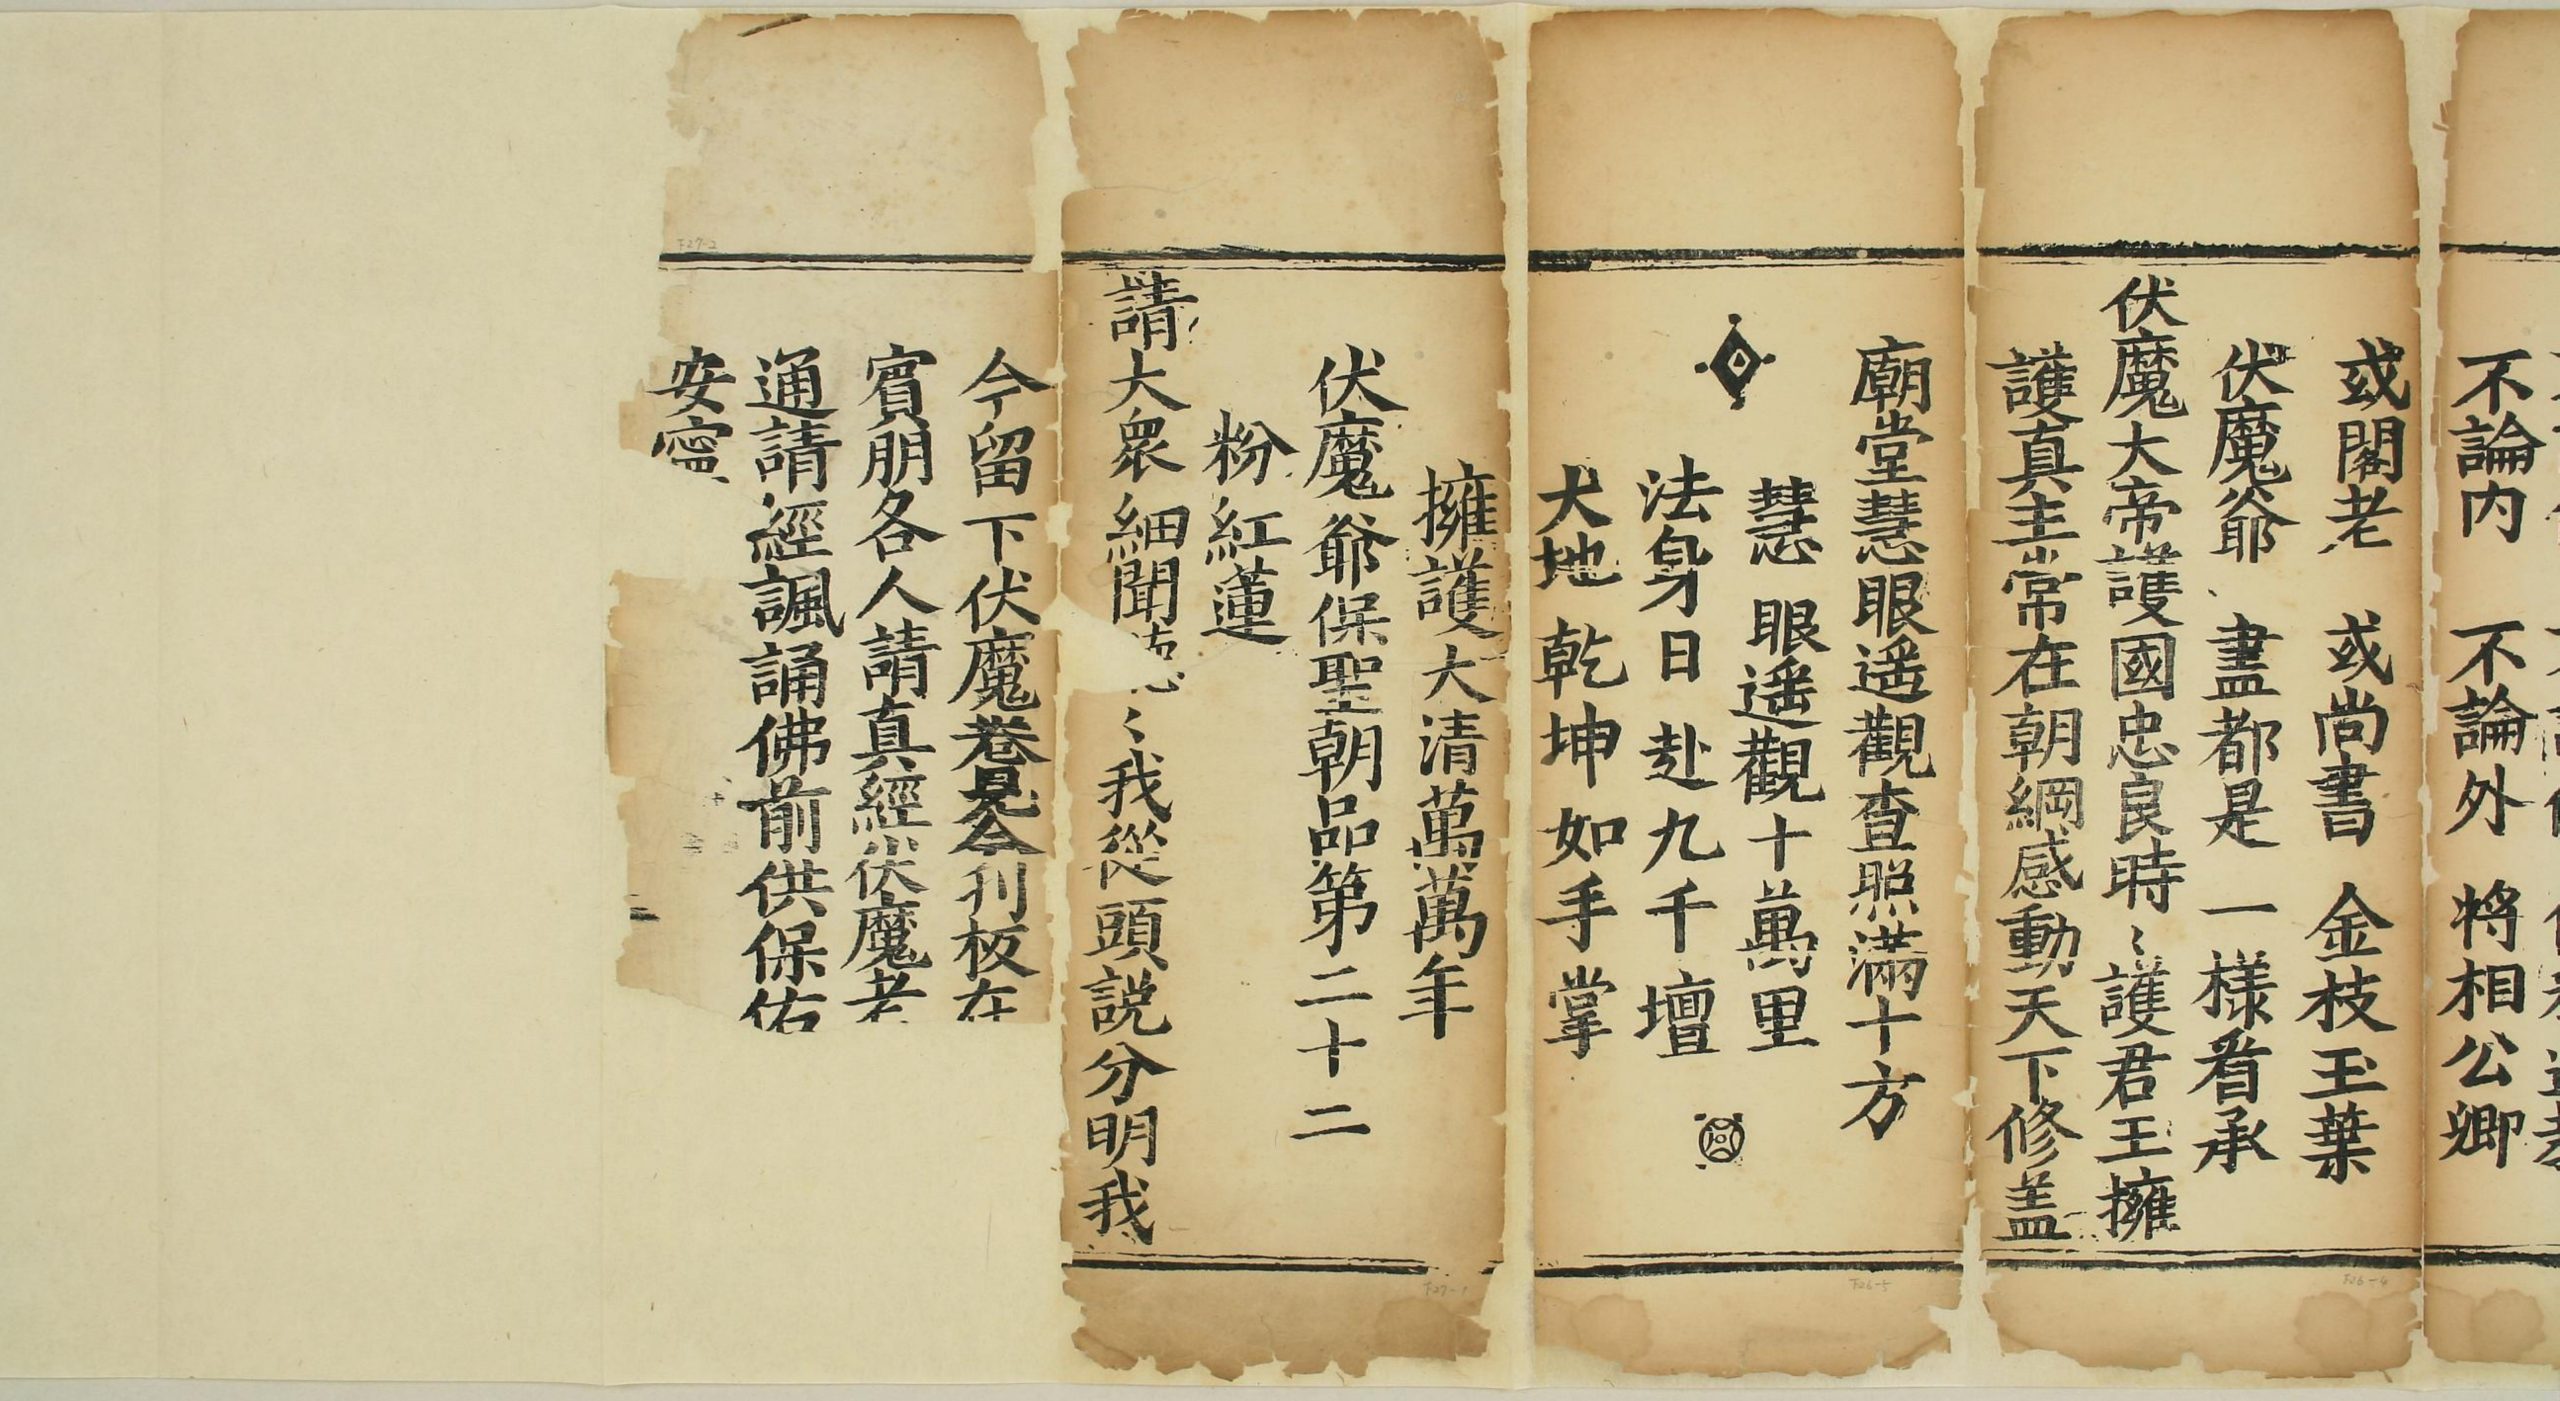 不論内 不論外 將相公卿
或閣老 或尚書 金枝玉葉
伏魔爺 盡都是 一樣看承
伏魔大帝護國忠良時〻護君王擁
護真主常在朝綱感動天下修盖
廟堂慧眼遥觀查照滿十方
慧眼遥觀十萬里
法身日赴九千壇
犬地乾坤如手掌
擁護大清萬萬年
伏魔爺保聖朝品第二十二
粉紅蓮
請大衆細聞 〻我從頭説分明我
今留下伏魔卷見今刊板在
賓朋各人請真經伏魔老
通請經諷誦佛前供保佑
安寧